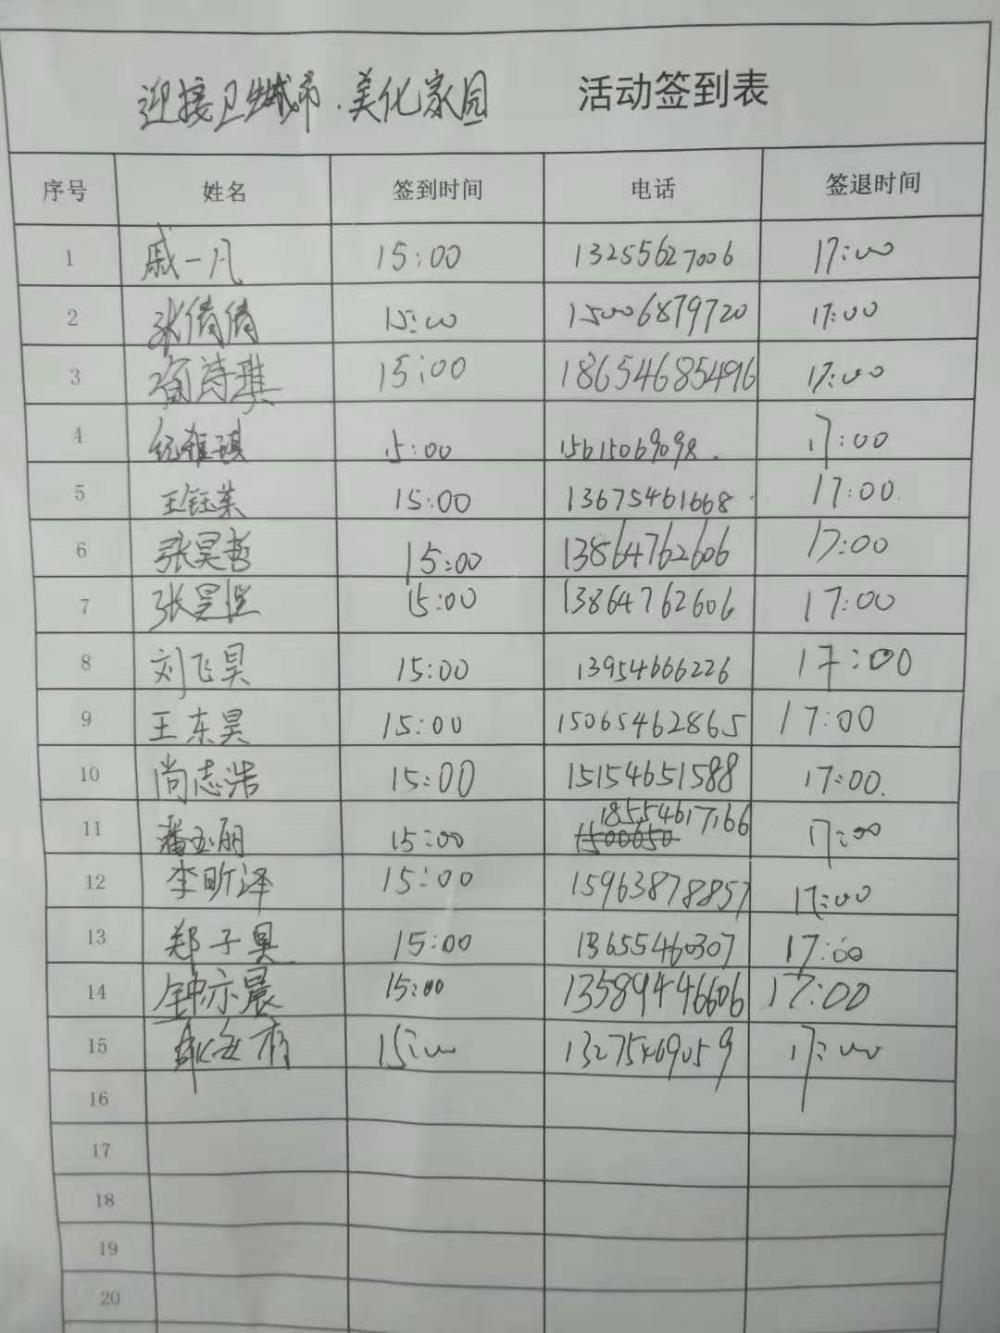 迎接卫生城市.美化家园 活动签到表
序号 姓名 签到时间 电话 签退时间
1 戚一凡 15:00 13255627006 17:00
2 张倩倩 15:00 15006879720 17:00
3 诗琪 15:00 18654685496 17:00
4 纪雅琪 15:00 15615069098. 17:00
5 王钰莱 15:00 13675461668 17:00.
6 张昊哲 15:00 13864762606 17:00
7 张昊 15:00 13864762606 17:00
8 刘飞昊 15:00 13954666226 17:00
9 王东昊 15:00 15065462865 17:00
10 尚志浩 15:00 15154651588 17:00.
11 潘玉丽 15:00 18554617166 17:00
12 李昕泽 15:00 15963878857 17:00
13 郑子昊 15:00 13655460307 17:00
14 钟亦晨 15:00 13589446606 17:00
15 15:00 13275469059 17:00
16
17
18
19
20